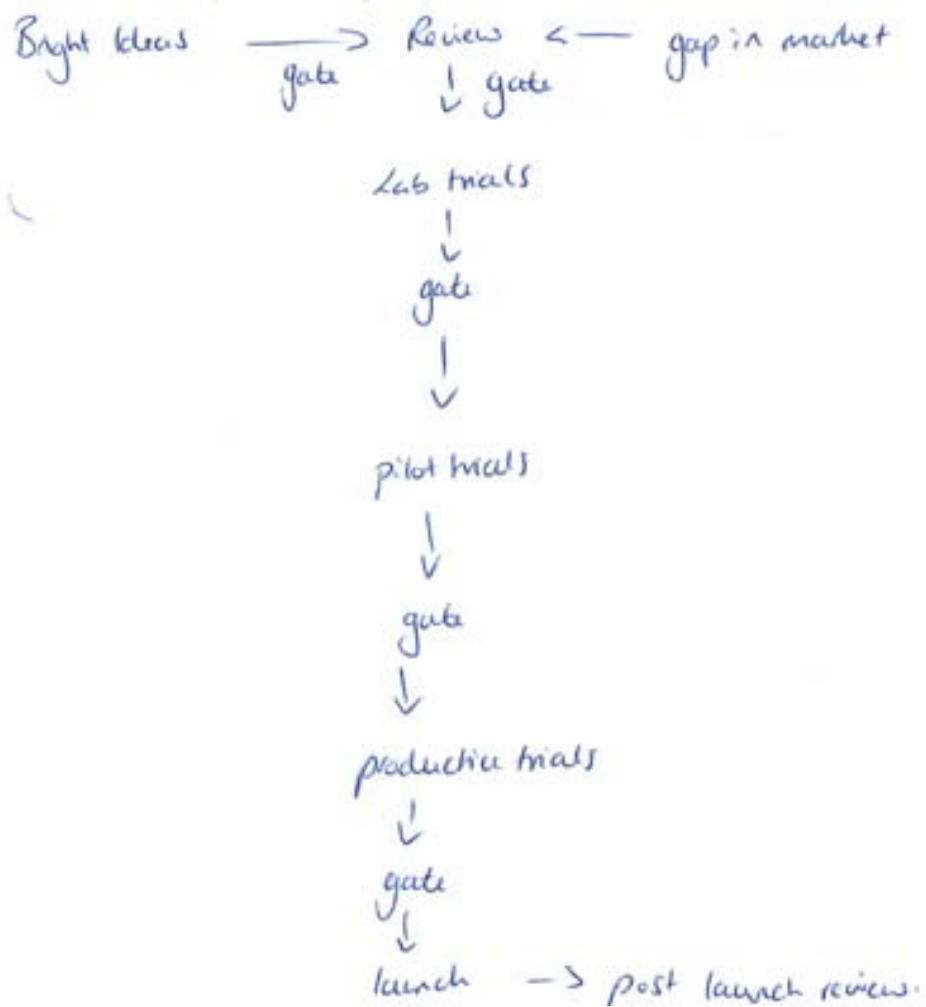 Bright Ideas → Review ← gap in market
gate ↓ gate
Lab trials
↓
gate
↓
pilot trials
↓
gate
↓
production trials
↓
gate
↓
launch → post launch review.